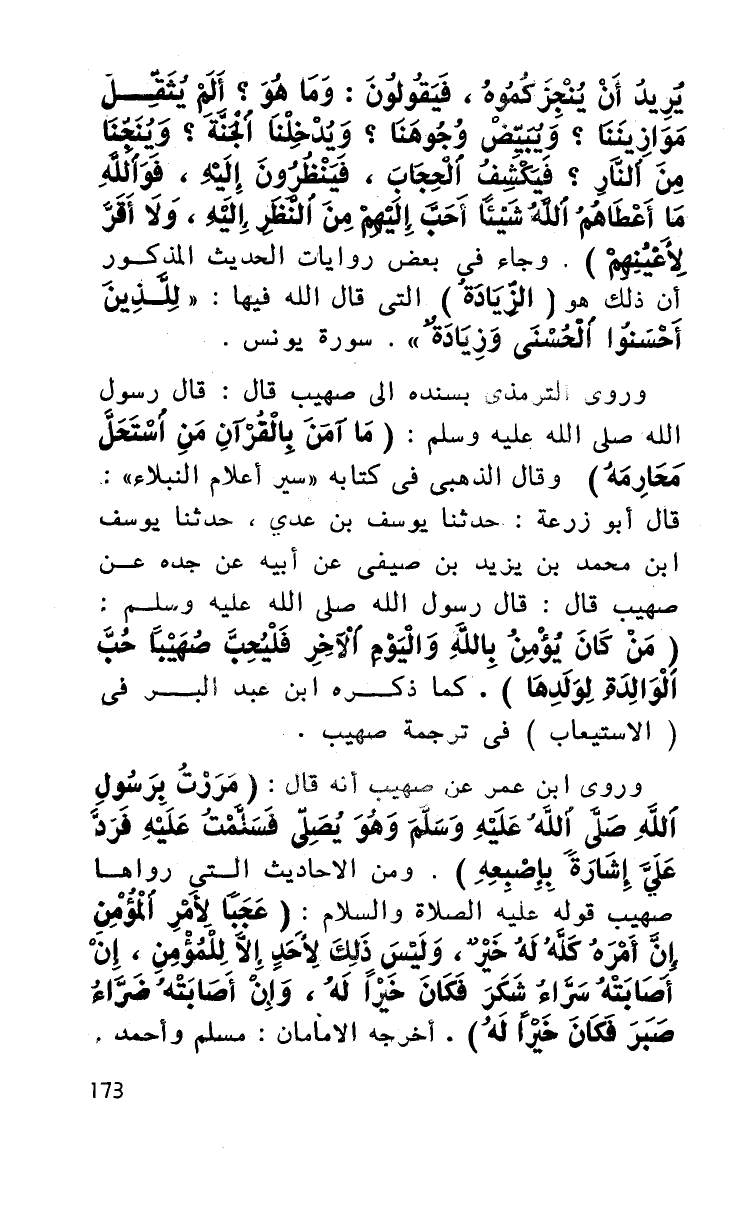 يُرِيدُ أَنْ يُنْجِزَ كُمُوهُ ، فَيَقُولُونَ : وَمَا هُوَ ؟ أَلَمْ يُثَقِّــلْ
مَوَازِينَنَا ؟ وَيُبَيِّضْ وُجُوهَنَا ؟ وَيُدْخِلْنَا ٱلْجَنَّةَ ؟ وَيُنَجِّنَا
مِنَ ٱلنَّارِ ؟ فَيَكْشِفُ ٱلْحِجَابَ ، فَيَنْظُرُونَ إِلَيْهِ ، فَوَٱللَّهِ
مَا أَعْطَاهُمُ ٱللَّهُ شَيْئًا أَحَبَّ إِلَيْهِمْ مِنَ ٱلنَّظَرِ إِلَيْهِ ، وَلَا أَقَرَّ
لِأَعْيُنِهِمْ ) . وجاء فى بعض روايات الحديث المذكـور
أن ذلك هو ( الزِّيَادَةُ ) التى قال الله فيها : « لِلَّــذِينَ
أَحْسَنُوا ٱلْحُسْنَى وَزِيَادَةٌ » . سورة يونس .
وروى الترمذى بسنده الى صهيب قال : قال رسول
الله صلى الله عليه وسلم : ( مَا آمَنَ بِالْقُرْآنِ مَنِ ٱسْتَحَلَّ
مَحَارِمَهُ ) وقال الذهبى فى كتابه «سير أعلام النبلاء» :
قال أبو زرعة : حدثنا يوسف بن عدي ، حدثنا يوسف
ابن محمد بن يزيد بن صيفى عن أبيه عن جده عــن
صهيب قال : قال رسول الله صلى الله عليه وسلــم :
( مَنْ كَانَ يُؤْمِنُ بِاللَّهِ وَالْيَوْمِ ٱلْآخِرِ فَلْيُحِبَّ صُهَيْباً حُبَّ
ٱلْوَالِدَةِ لِوَلَدِهَا ) . كما ذكـــره ابن عبد البــــر فى
( الاستيعاب ) فى ترجمة صهيب .
وروى ابن عمر عن صهيب أنه قال : ( مَرَرْتُ بِرَسُولِ
ٱللَّهِ صَلَّى ٱللَّهُ عَلَيْهِ وَسَلَّمَ وَهُوَ يُصَلِّى فَسَلَّمْتُ عَلَيْهِ فَرَدَّ
عَلَيَّ إِشَارَةً بِإِصْبِعِهِ ) . ومن الاحاديث الــتي رواهــا
صهيب قوله عليه الصلاة والسلام : ( عَجَبًا لِأَمْرِ ٱلْمُؤْمِنِ
إِنَّ أَمْرَهُ كُلَّهُ لَهُ خَيْرٌ ، وَلَيْسَ ذَلِكَ لِأَحَدٍ إِلاَّ لِلْمُؤْمِنِ ، إِنْ
أَصَابَتْهُ سَرَّاءُ شَكَرَ فَكَانَ خَيْراً لَهُ ، وَإِنْ أَصَابَتْهُ ضَرَّاءُ
صَبَرَ فَكَانَ خَيْراً لَهُ ) . أخرجه الامامان : مسلم وأحمد .
173